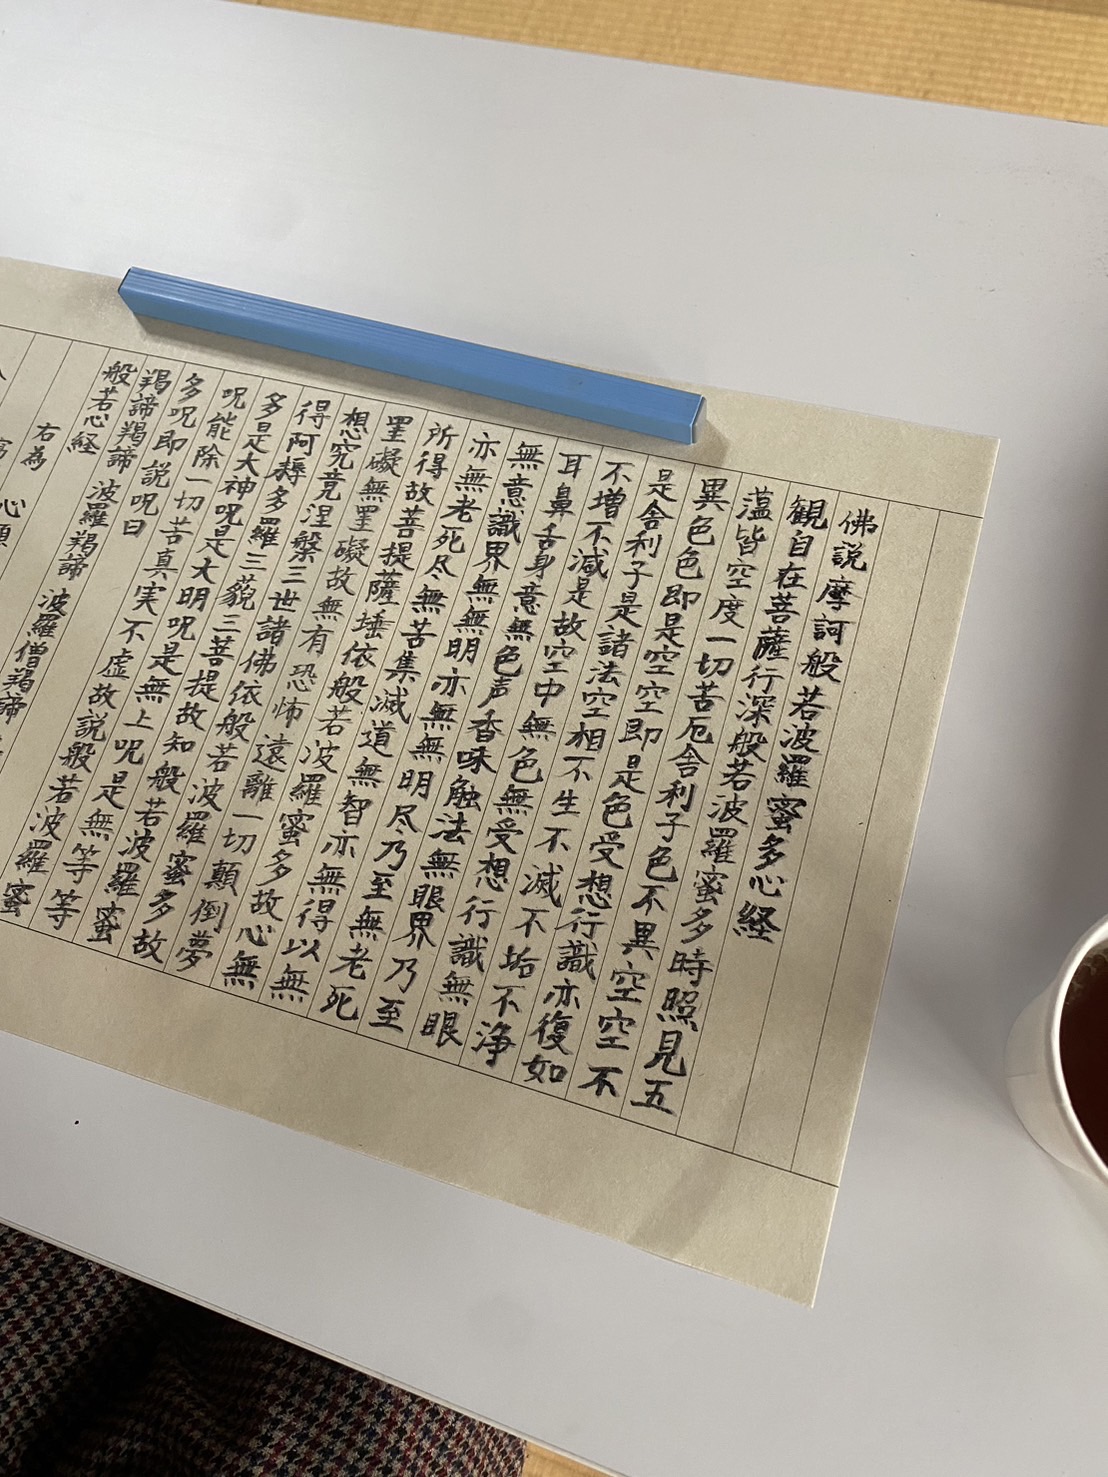 佛説摩訶般若波羅蜜多心経
観自在菩薩行深般若波羅蜜多時照見五
蘊皆空度一切苦厄舎利子色不異空空不
異色色即是空空即是色受想行識亦復如
是舎利子是諸法空相不生不滅不垢不浄
不増不減是故空中無色無受想行識無眼
耳鼻舌身意無色声香味触法無眼界乃至
無意識界無無明亦無無明尽乃至無老死
亦無老死尽無苦集滅道無智亦無得以無
所得故菩提薩埵依般若波羅蜜多故心無
罣礙無罣礙故無有恐怖遠離一切顛倒夢
想究竟涅槃三世諸佛依般若波羅蜜多故
得阿耨多羅三藐三菩提故知般若波羅蜜
多是大神呪是大明呪是無上呪是無等等
呪能除一切苦真実不虚故説般若波羅蜜
多呪即説呪曰
羯諦羯諦 波羅羯諦 波羅僧羯諦
般若心経
右為 心願